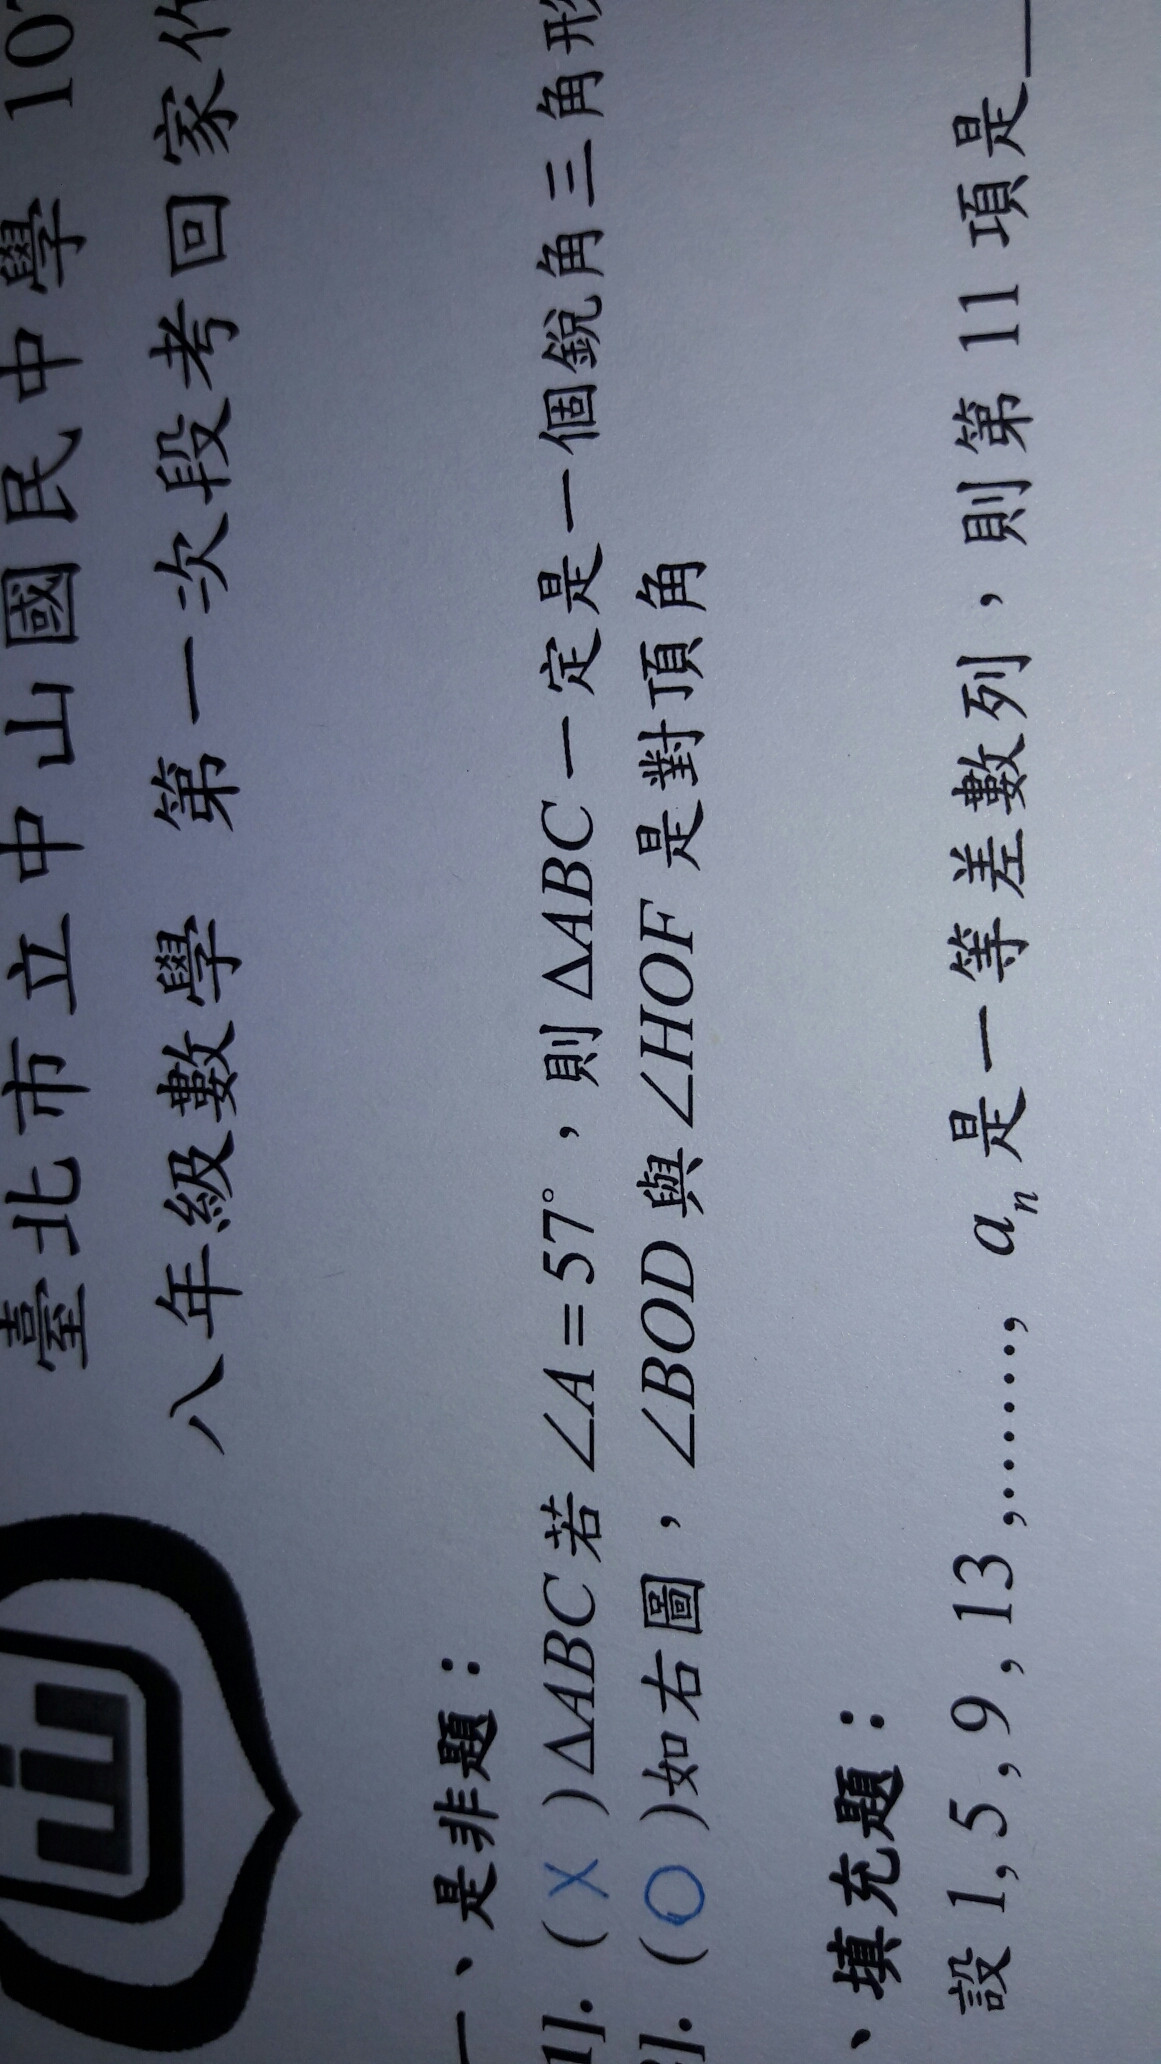 臺北市立中山國民中學 107
八年級數學 第一次段考回家作
一、是非題：
1]. ( X )ΔABC若∠A=57°，則ΔABC一定是一個銳角三角形
2]. ( O )如右圖，∠BOD與∠HOF是對頂角
、填充題：
設 1, 5, 9, 13,……, aₙ是一等差數列，則第 11 項是__